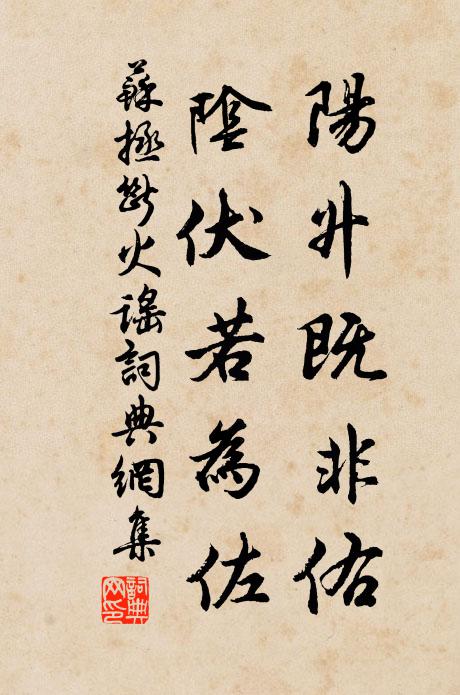 陽升既非佑
陰伏若為佐
蘇拯斷火謠詞典網集
詞典网印